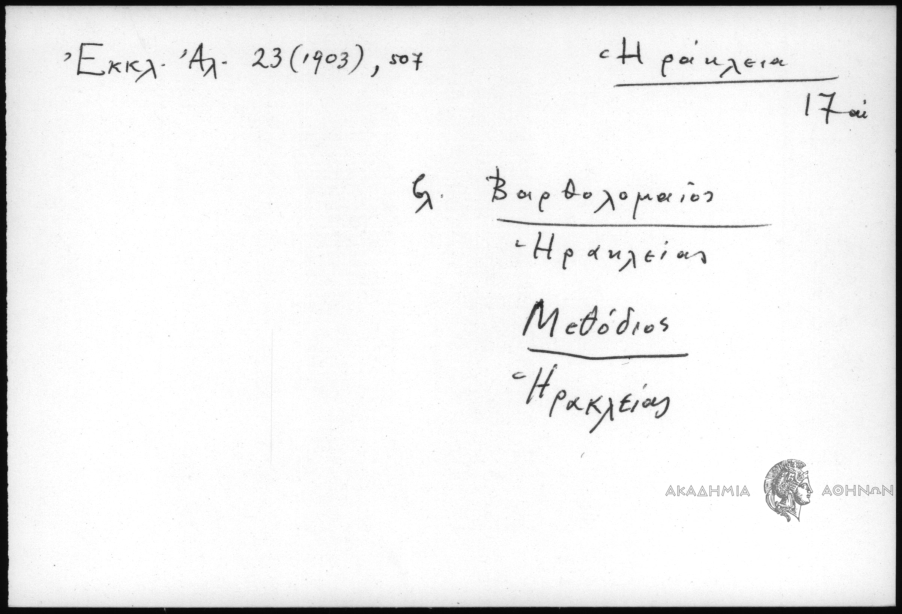 Ἐκκλ. Ἀλ. 23 (1903), 507
Ἡράκλεια
17 αἰ
βλ. Βαρθολομαῖος
Ἡρακλείας
Μεθόδιος
Ἡρακλείας
ΑΚΑΔΗΜΙΑ ΑΘΗΝΩΝ